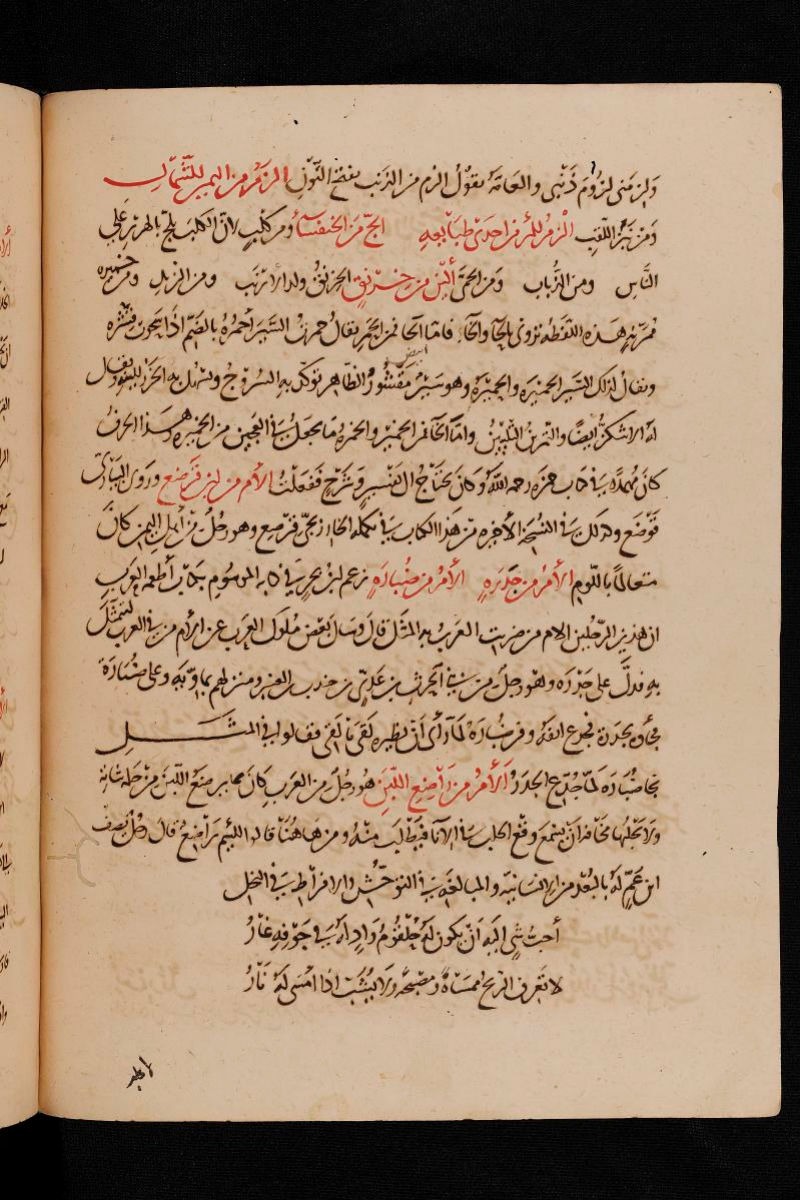 ولزمني لزوم ذنبي والعامة تقول الزم من الذنب بفتح النون الزم من اليمين للشمال
ومن نبز اللقب الزم للمرء من احدى طبائعه الج من الخنفساء ومن كلب لان الكلب يلج بالهرير على
الناس ومن الذباب ومن الحمى ألين من خرنق الخرنق ولد الارنب ومن الزبد ومن خميرة
ممرنة هذه اللفظة تروى بالحاء والخاء فاما الحاء فمن الحمر يقال حمرت السير أحمره بالضم اذا سحوت قشره
ويقال لذلك السير الحمير والحميرة وهو سير ابيض مقشور الظاهر توكد به السروج ويسهل به الخرز لليونه ويقال
له الاشكز أيضا والتمرين التليين واما الخاء فمن الخمير والخمرة ما يجعل في العجين من الخميرة وهذا الحرف
كان مهملا في كتاب حمزة رحمه الله وكان يحتاج الى تفسير وشرح ففعلت الأم من ابن قرصع وروى البياري
قوضع وذلك في النسخة الأخيرة من هذا الكتاب في تكملة الخارزنجي قرصع وهو رجل من أهل اليمن كان
متعالما باللوم الأم من جدرة الأم من ضبارة زعم ابن بحر في كتابه الموسوم بكتاب أطعمة العرب
ان هذين الرجلين الأم من ضربت العرب به المثل قال وسال بعض ملوك العرب عن الأم من في العرب ليمثل
به فدل على جدرة وهو رجل من بني الحرث بن عدي بن جندب بن العنبر ومنزلهم بماوية وعلى ضبارة
فجاؤه بجدرة فجدع انفه وفر ضبارة لما رأى ان نظيره لقي ما لقي فقالوا في المثل
نجا ضبارة لما جدع الجدرة الأم من راضع اللبن هو رجل من العرب كان يرضع اللبن من حلمة شاته
ولا يحلبها مخافة ان يسمع وقع الحلب في الانا فيطلب منه ومن هاهنا قالوا لئيم راضع قال رجل يصف
ابن عم له بالبعد من الانسانية والمبالغة في التوحش والافراط في البخل
أحب شي اليه ان يكون له حلقوم واد له في جوفه غار
لا تعرف الريح ممساه ومصبحه ولا يشب اذا امسى له نار